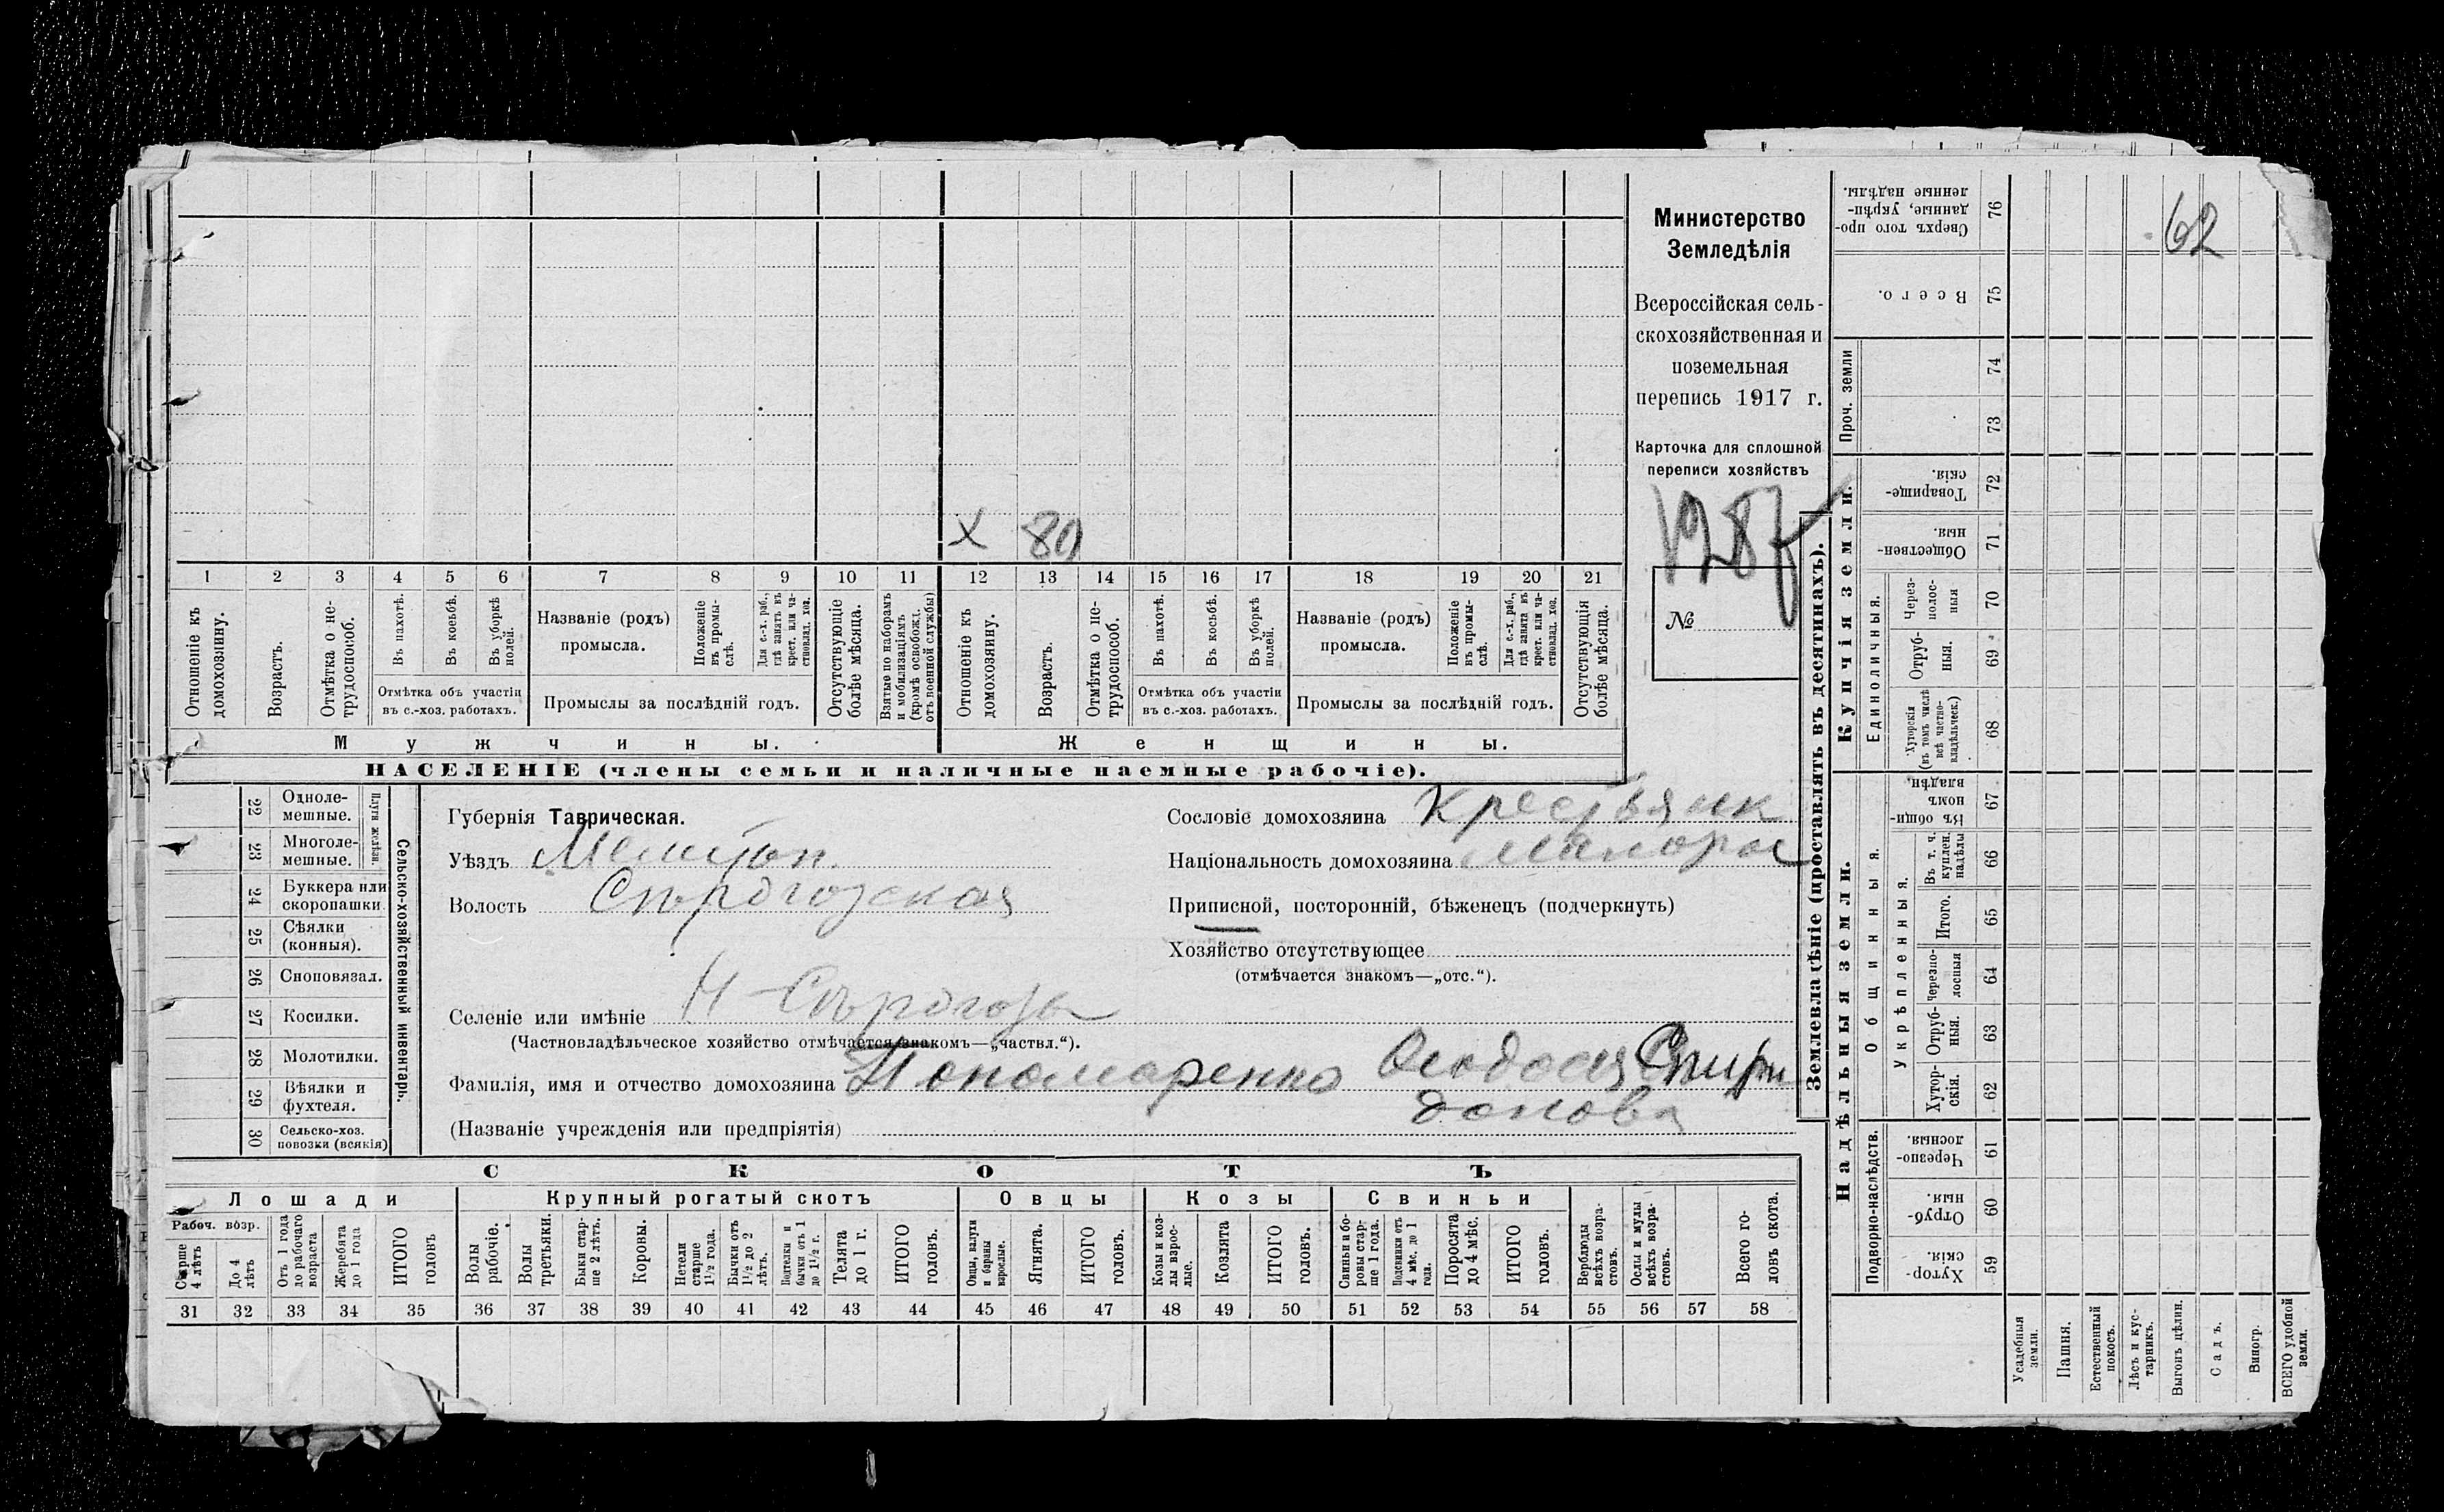 62
Министерство
Земледѣлія
Всероссійская сель-
скохозяйственная и
поземельная
перепись 1917 г.
Карточка для сплошной
переписи хозяйствъ
1287
№
х 80
1 2 3 4 5 6 7 8 9 10 11 12 13 14 15 16 17 18 19 20 21
Отношеніе къ домохозяину.
Возрастъ.
Отмѣтка о не-трудоспособ.
Въ пахотѣ.
Въ косьбѣ.
Въ уборкѣ полей.
Отмѣтка объ участіи
въ с.-хоз. работахъ.
Названіе (родъ)
промысла.
Положеніе въ промы-слѣ.
Для с.-х. раб., гдѣ занятъ въ крест. или ча-стновлад. хоз.
Промыслы за послѣдній годъ.
Отсутствующіе болѣе мѣсяца.
Взятые по наборамъ и мобилизаціямъ (кромѣ освобожд. отъ военной службы)
Отношеніе къ домохозяину.
Возрастъ.
Отмѣтка о не-трудоспособ.
Въ пахотѣ.
Въ косьбѣ.
Въ уборкѣ полей.
Отмѣтка объ участіи
въ с.-хоз. работахъ.
Названіе (родъ)
промысла.
Положеніе въ промы-слѣ.
Для с.-х. раб., гдѣ занята въ крест. или ча-стновлад. хоз.
Промыслы за послѣдній годъ.
Отсутствующія болѣе мѣсяца.
Мужчины.
Женщины.
НАСЕЛЕНІЕ (члены семьи и наличные наемные рабочіе).
22 Одноле-мешные.
23 Многоле-мешные.
Плуги желѣзн.
24 Буккера или скоропашки
25 Сѣялки (конныя).
26 Сноповязал.
27 Косилки.
28 Молотилки.
29 Вѣялки и фухтеля.
30 Сельско-хоз. повозки (всякія)
Сельско-хозяйственный инвентарь.
Губернія Таврическая.
Уѣздъ Мелитоп.
Волость Сѣрогозская
Селеніе или имѣніе Н-Сѣрогозы
(Частновладѣльческое хозяйство отмѣчается знакомъ—„частвл.“).
Фамилія, имя и отчество домохозяина Пономаренко Феодосія Спири
донова
(Названіе учрежденія или предпріятія)
Сословіе домохозяина Крестьянк
Національность домохозяина Малорос
Приписной, посторонній, бѣженецъ (подчеркнуть)
Хозяйство отсутствующее
(отмѣчается знакомъ—„отс.“).
СКОТЪ
Лошади
Крупный рогатый скотъ
Овцы
Козы
Свиньи
Рабоч. возр.
Старше 4 лѣтъ
До 4 лѣтъ
Отъ 1 года до рабочаго возраста
Жеребята до 1 года
ИТОГО головъ
Волы рабочіе.
Волы третьяки.
Быки стар-ше 2 лѣтъ.
Коровы.
Нетели старше 1½ года.
Бычки отъ 1½ до 2 лѣтъ.
Подтелки и бычки отъ 1 до 1½ г.
Телята до 1 г.
ИТОГО головъ.
Овцы, валухи и бараны взрослые.
Ягнята.
ИТОГО головъ.
Козы и коз-лы взрос-лые.
Козлята
ИТОГО головъ.
Свиньи и бо-ровы стар-ше 1 года.
Подсвинки отъ 4 мѣс. до 1 года.
Поросята до 4 мѣс.
ИТОГО головъ.
Верблюды всѣхъ возра-стовъ.
Ослы и мулы всѣхъ возра-стовъ.
Всего го-ловъ скота.
31 32 33 34 35 36 37 38 39 40 41 42 43 44 45 46 47 48 49 50 51 52 53 54 55 56 57 58
Землевладѣніе (проставлять въ десятинахъ).
Купчія земли.
Надѣльныя земли.
Сверхъ того про-данные, укрѣп-ленные надѣлы. 76
Всего. 75
Проч. земли
74
73
Товарище-скія. 72
Обществен-ныя. 71
Единоличныя.
Через-полос-ныя 70
Отруб-ныя. 69
Хуторскія (въ томъ числѣ всѣ частно-владѣльческ.) 68
Общинныя.
Въ общин-номъ владѣн 67
Укрѣпленныя.
Въ т. ч. куплен. надѣлы 66
Итого. 65
Черезпо-лосныя 64
Отруб-ныя. 63
Хутор-скія. 62
Подворно-наслѣдств.
Черезпо-лосныя. 61
Отруб-ныя. 60
Хутор-скія. 59
Усадебныя земли.
Пашня.
Естественный покосъ.
Лѣсъ и кус-тарникъ.
Выгонъ цѣлин.
Садъ.
Виногр.
ВСЕГО удобной земли.